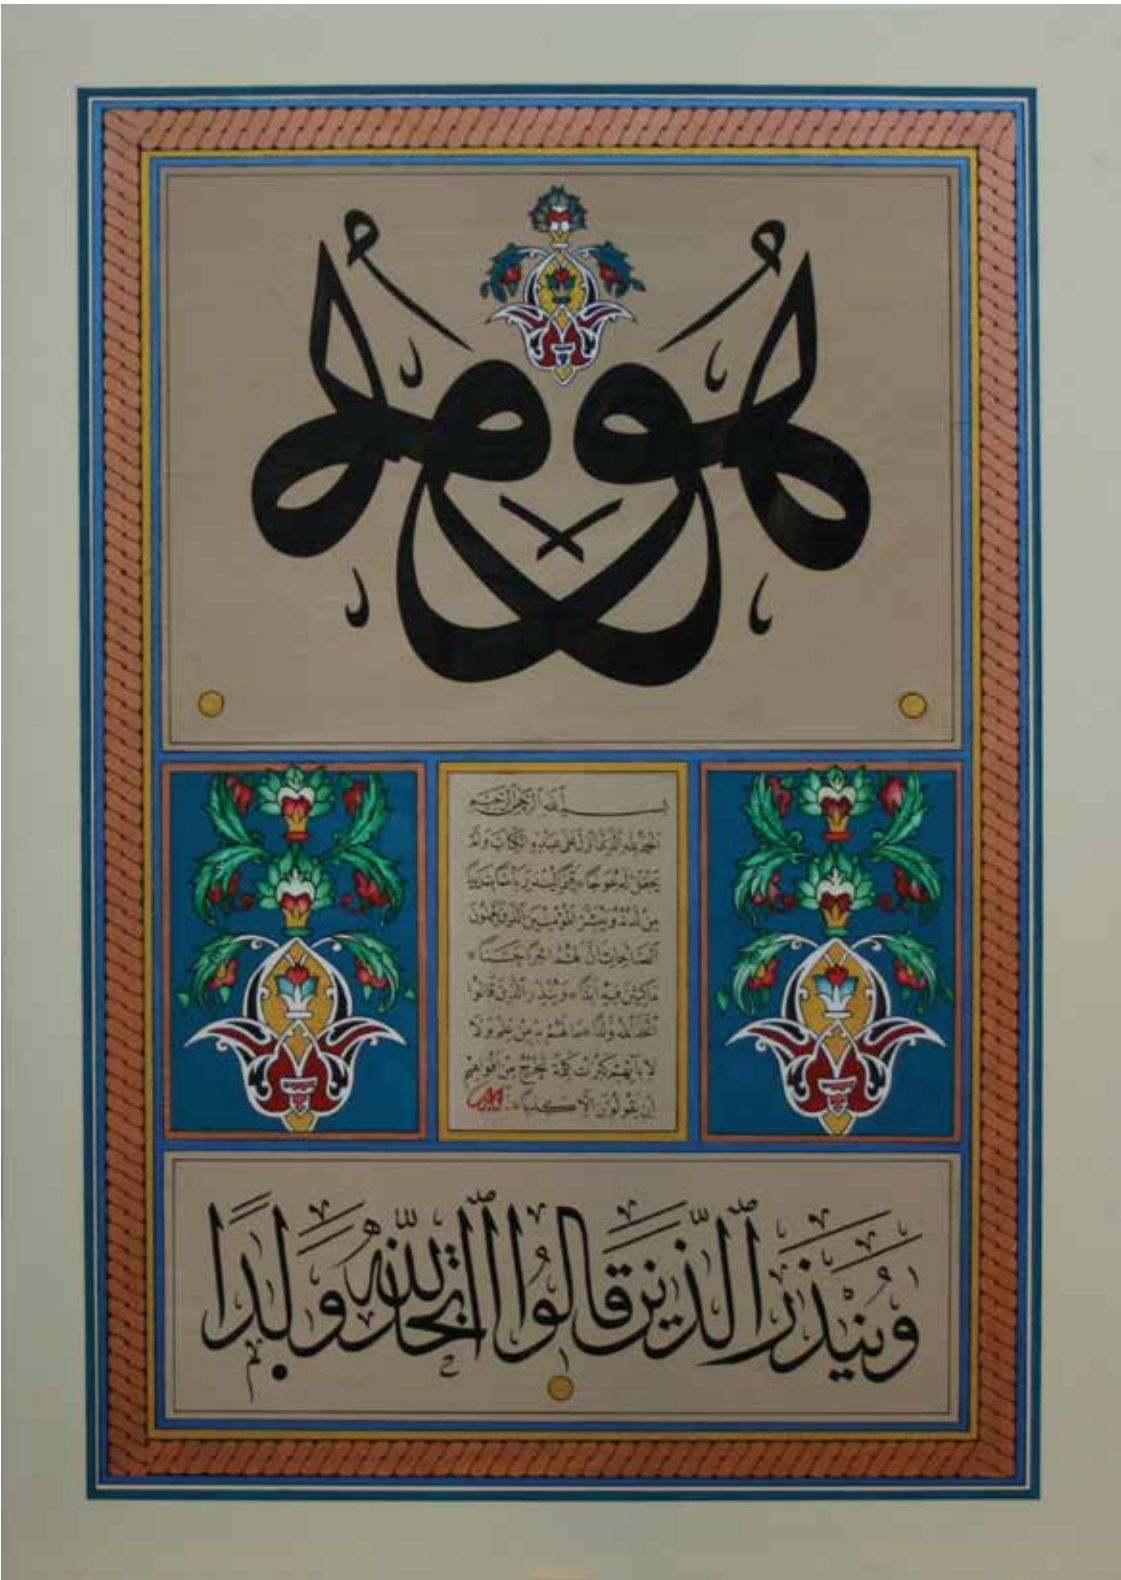 هُوَ
بسم ٱلله ٱلرحمن ٱلرحيم
الحمد لله الذي انزل على عبده الكتاب ولم
يجعل له عوجا * قيما لينذر بأسا شديدا
من لدنه ويبشر المؤمنين الذين يعملون
الصالحات ان لهم اجرا حسنا *
ماكثين فيه ابدا * وينذر الذين قالوا
اتخذ الله ولدا * ما لهم به من علم ولا
لابآئهم كبرت كلمة تخرج من افواههم
ان يقولون الا كذبا *
وَيُنْذِرَ ٱلَّذِينَ قَالُوا ٱتَّخَذَ ٱللَّهُ وَلَدًا